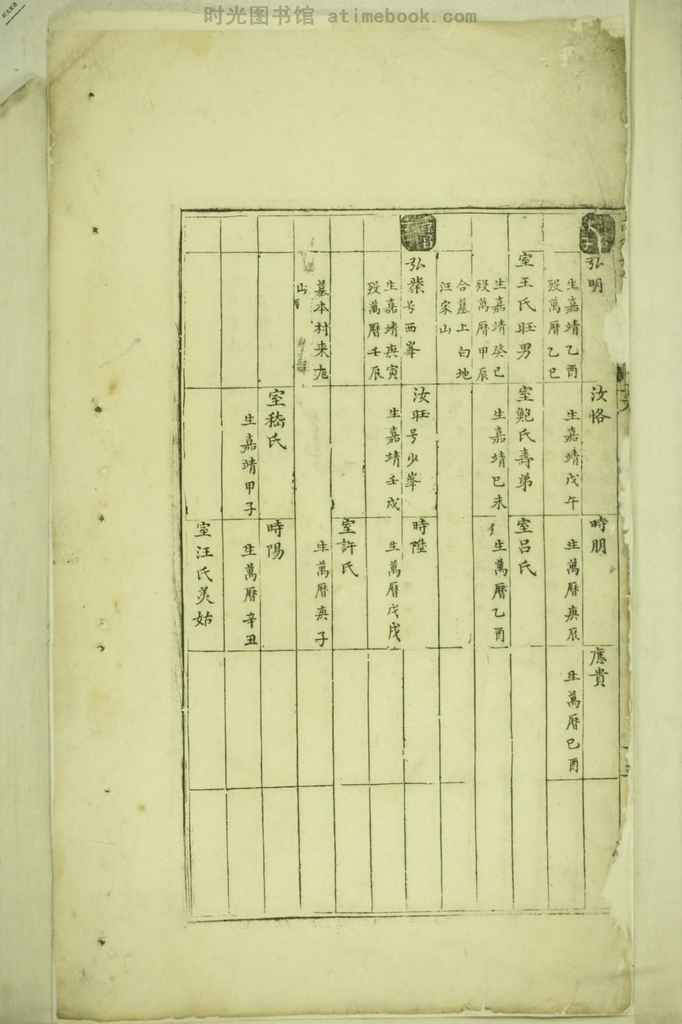 时光图书馆 atimebook.com
弘明
生嘉靖乙酉
歿萬曆乙巳
室王氏旺男
生嘉靖癸巳
歿萬曆甲辰
合墓上白地
汪家山
弘 号西峯
生嘉靖庚寅
歿萬曆壬辰
墓本村来龙
山
汝恪
生嘉靖戊午
室鮑氏壽弟
生嘉靖己未
汝旺号少峯
生嘉靖壬戌
室嵇氏
生嘉靖甲子
時朋
生萬曆庚辰
室呂氏
生萬曆乙酉
時陞
生萬曆戊戌
室許氏
生萬曆庚子
時陽
生萬曆辛丑
室汪氏美姑
應貴
生萬曆己酉